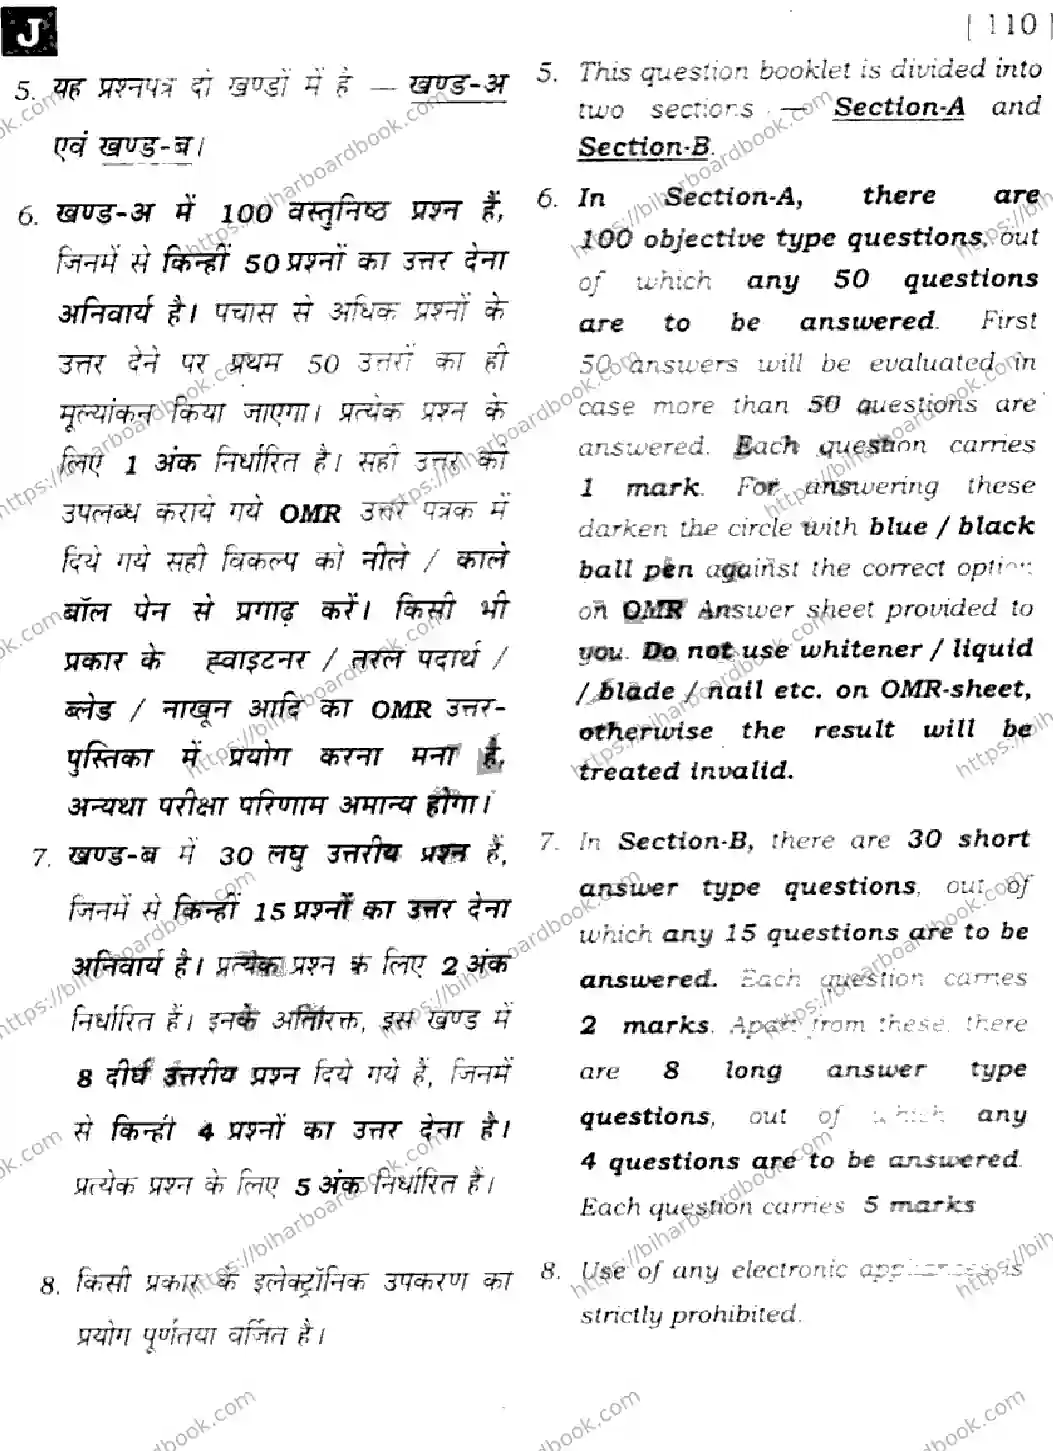 J
[ 110 ]
5. यह प्रश्नपत्र दो खण्डों में है — खण्ड-अ
एवं खण्ड-ब।
6. खण्ड-अ में 100 वस्तुनिष्ठ प्रश्न हैं,
जिनमें से किन्हीं 50 प्रश्नों का उत्तर देना
अनिवार्य है। पचास से अधिक प्रश्नों के
उत्तर देने पर प्रथम 50 उत्तरों का ही
मूल्यांकन किया जाएगा। प्रत्येक प्रश्न के
लिए 1 अंक निर्धारित है। सही उत्तर को
उपलब्ध कराये गये OMR उत्तर पत्रक में
दिये गये सही विकल्प को नीले / काले
बॉल पेन से प्रगाढ़ करें। किसी भी
प्रकार के ह्वाइटनर / तरल पदार्थ /
ब्लेड / नाखून आदि का OMR उत्तर-
पुस्तिका में प्रयोग करना मना है,
अन्यथा परीक्षा परिणाम अमान्य होगा।
7. खण्ड-ब में 30 लघु उत्तरीय प्रश्न हैं,
जिनमें से किन्हीं 15 प्रश्नों का उत्तर देना
अनिवार्य है। प्रत्येक प्रश्न के लिए 2 अंक
निर्धारित हैं। इनके अतिरिक्त, इस खण्ड में
8 दीर्घ उत्तरीय प्रश्न दिये गये हैं, जिनमें
से किन्हीं 4 प्रश्नों का उत्तर देना है।
प्रत्येक प्रश्न के लिए 5 अंक निर्धारित है।
8. किसी प्रकार के इलेक्ट्रॉनिक उपकरण का
प्रयोग पूर्णतया वर्जित है।
5. This question booklet is divided into
two sections — Section-A and
Section-B.
6. In Section-A, there are
100 objective type questions, out
of which any 50 questions
are to be answered. First
50 answers will be evaluated in
case more than 50 questions are
answered. Each question carries
1 mark. For answering these
darken the circle with blue / black
ball pen against the correct option
on OMR Answer sheet provided to
you. Do not use whitener / liquid
/ blade / nail etc. on OMR-sheet,
otherwise the result will be
treated invalid.
7. In Section-B, there are 30 short
answer type questions, out of
which any 15 questions are to be
answered. Each question carries
2 marks. Apart from these, there
are 8 long answer type
questions, out of which any
4 questions are to be answered.
Each question carries 5 marks
8. Use of any electronic appliances is
strictly prohibited.
https://biharboardbook.com